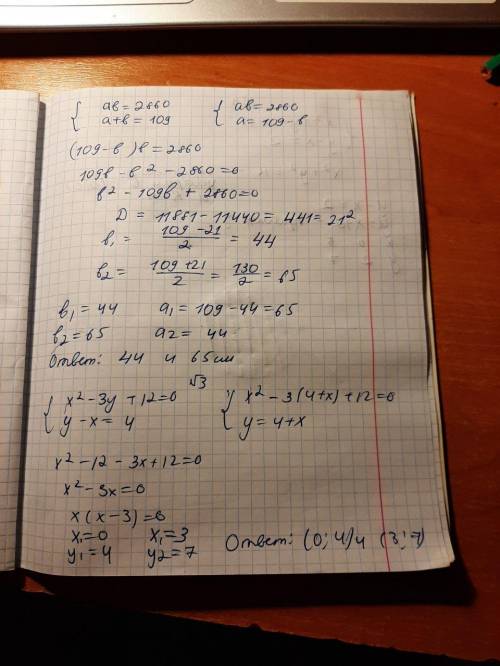 { ав = 2860   { ав = 2860
а+в = 109   а = 109 - в
(109 - в)в = 2860
109в - в² - 2860 = 0
в² - 109в + 2860 = 0
D = 11881 - 11440 = 441 = 21²
в₁ = (109 - 21)/2 = 44
в₂ = (109 + 21)/2 = 130/2 = 65
в₁ = 44   а₁ = 109 - 44 = 65
в₂ = 65   а₂ = 44
Ответ: 44 и 65 см
√3
{ x² - 3y + 12 = 0   { x² - 3(4+x) + 12 = 0
y - x = 4   y = 4+x
x² - 12 - 3x + 12 = 0
x² - 3x = 0
x(x - 3) = 0
x₁ = 0   x₁ = 3
y₁ = 4   y₂ = 7   Ответ: (0; 4) и (3; 7)